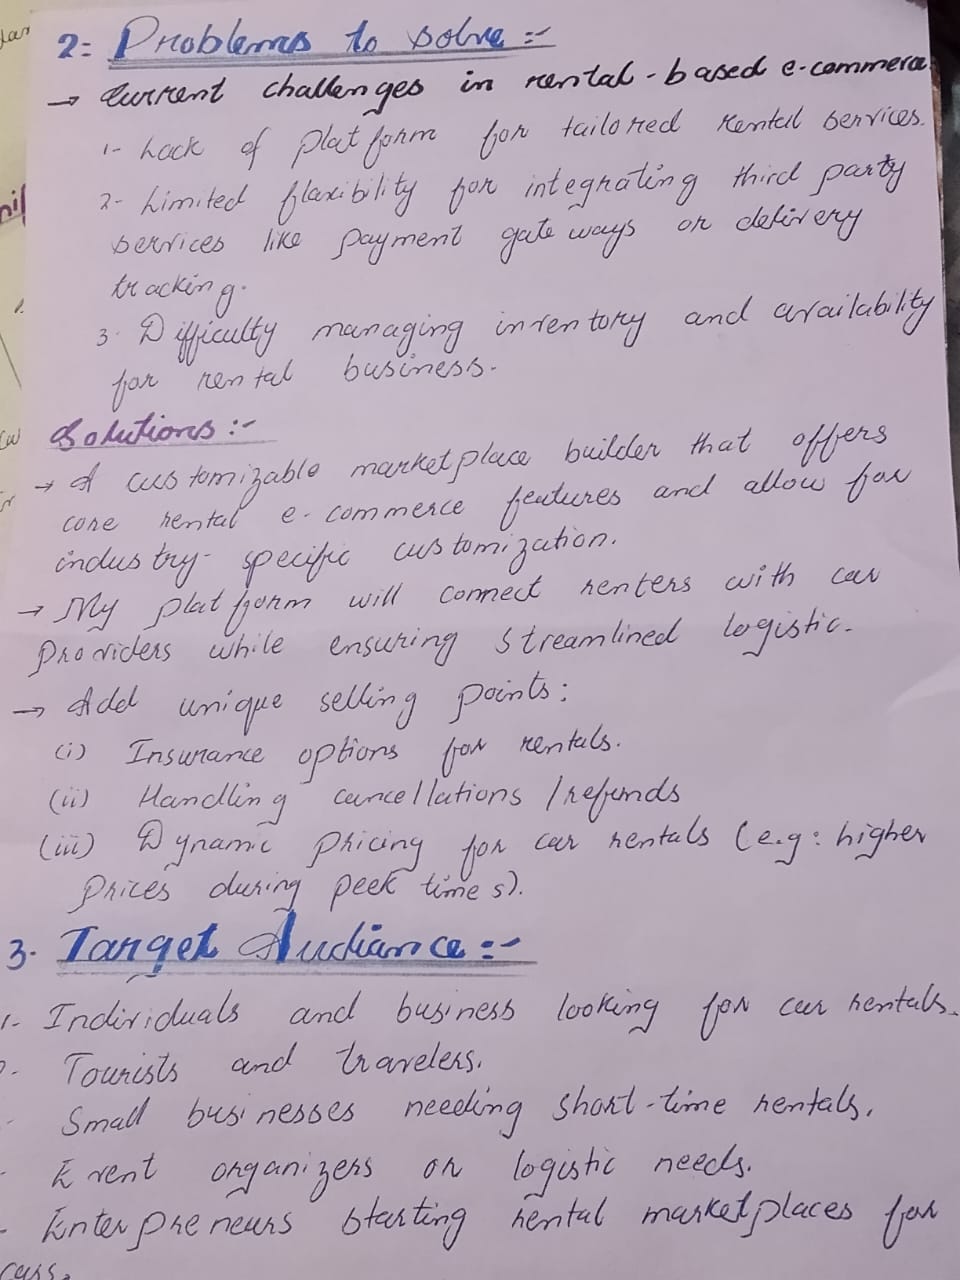 2:- Problems to solve :-
→ Current challenges in rental-based e-commerce
1- Lack of platform for tailored rental services.
2- Limited flaxibility for integrating third party
services like payment gate ways or delivery
tracking.
3. Difficulty managing inventory and availability
for rental business.
Solutions :-
→ A customizable marketplace builder that offers
core rental e-commerce features and allow for
industry-specific customization.
→ My platform will connect renters with car
Providers while ensuring streamlined logistic.
→ Add unique selling points:
(i) Insurance options for rentals.
(ii) Handling cancellations / refunds
(iii) Dynamic Pricing for car rentals (e.g: higher
Prices during peek times).
3. Target Audiance :-
1- Individuals and business looking for car rentals.
Tourists and travelers.
Small businesses needing short-time rentals.
Event organizers or logistic needs.
Enterpreneurs starting rental marketplaces for
cars.